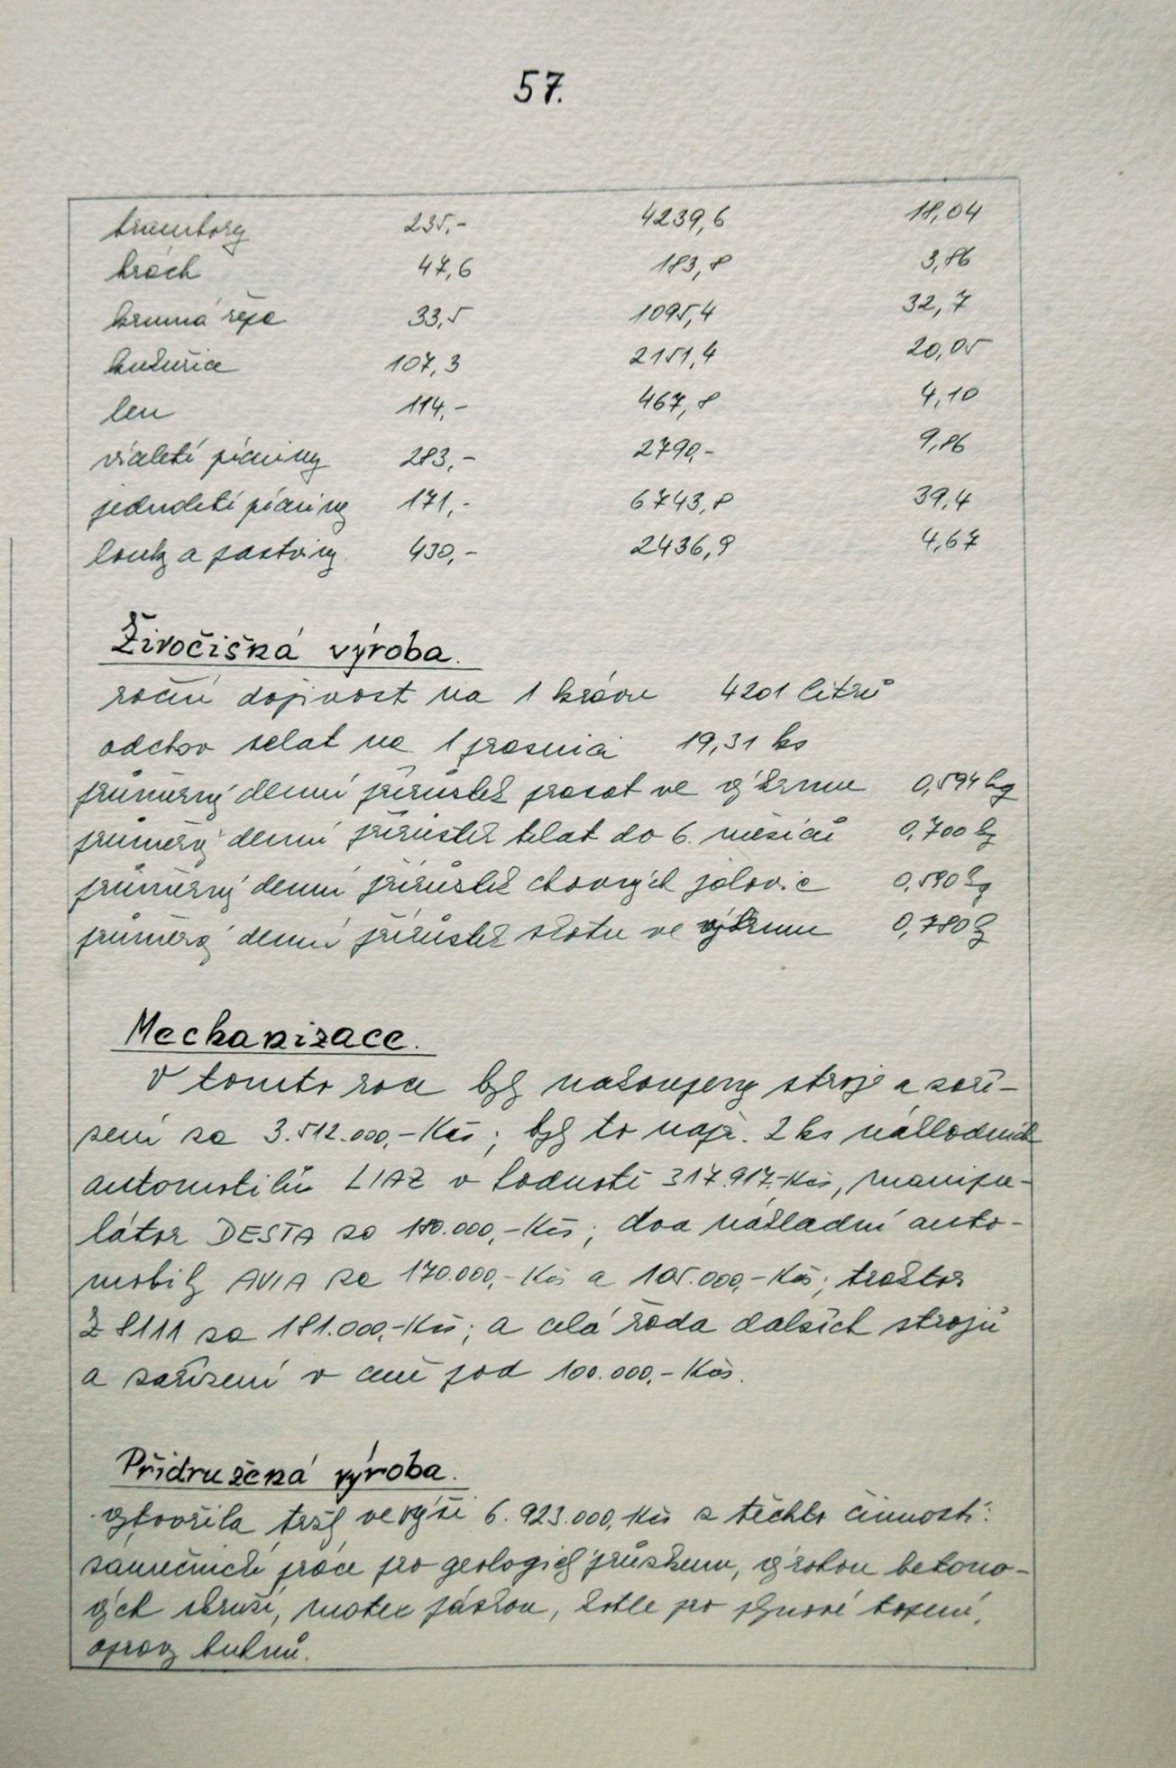 57.
brambory 235,- 4239,6 18,04
hrách 47,6 183,8 3,86
krmná řepa 33,5 1095,4 32,7
kukuřice 107,3 2151,4 20,05
len 114,- 467,8 4,10
víceleté pícniny 283,- 2790,- 9,86
jednoleté pícniny 171,- 6743,8 39,4
louky a pastviny 430,- 2436,9 4,67
Živočišná výroba.
roční dojivost na 1 krávu 4201 litrů
odchov selat na 1 prasnici 19,31 ks
průměrný denní přírůstek prasat ve výkrmu 0,594 kg
průměrný denní přírůstek telat do 6. měsíců 0,700 kg
průměrný denní přírůstek chovných jalovic 0,590 kg
průměrný denní přírůstek skotu ve výkrmu 0,780 kg
Mechanizace.
V tomto roce byly nakoupeny stroje a zaří-
zení za 3.512.000,- Kčs; byly to např. 2 ks nákladních
automobilů LIAZ v hodnotě 317.917,- Kčs, manipu-
látor DESTA za 180.000,- Kčs; dva nákladní auto-
mobily AVIA za 170.000,- Kčs a 105.000,- Kčs; traktor
Z 8111 za 181.000,- Kčs; a celá řada dalších strojů
a zařízení v ceně pod 100.000,- Kčs.
Přidružená výroba.
vytvořila tržby ve výši 6.923.000,- Kčs z těchto činností:
zámečnické práce pro geologický průzkum, výrobou betono-
vých skruží, motex páskou, kotle pro plynové topení,
opravy bubnů.